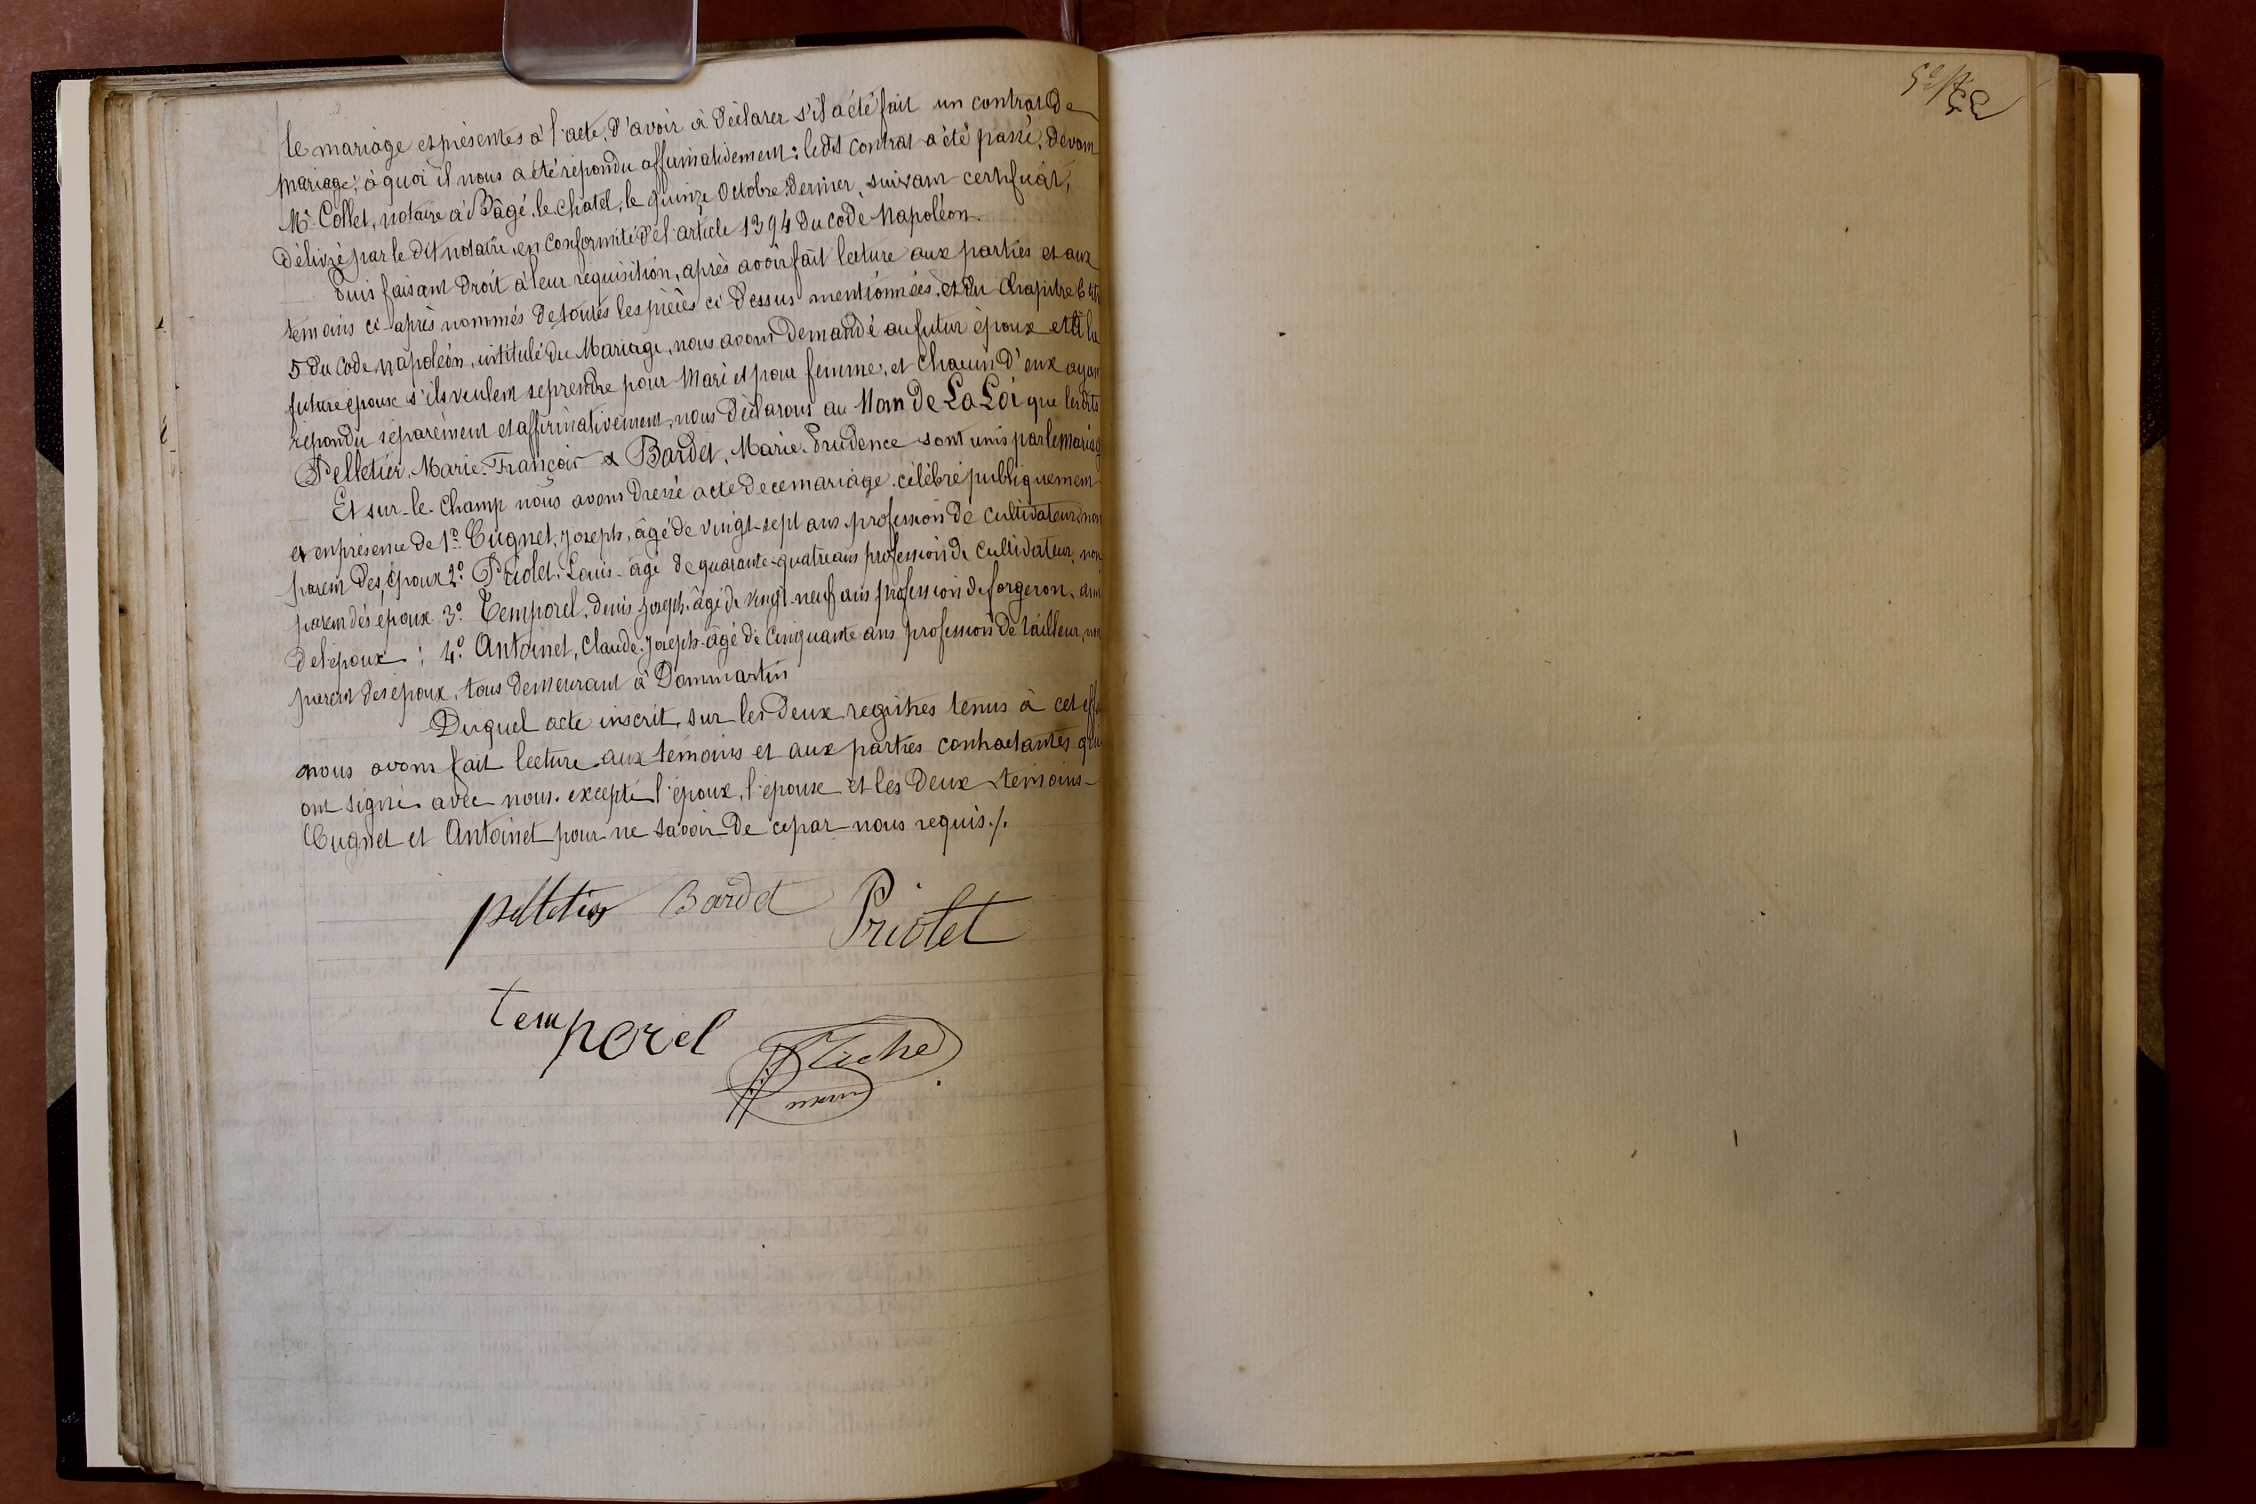 le mariage et présentes à l'acte, d'avoir à déclarer s'il a été fait un contrat de
mariage; à quoi il nous a été répondu affirmativement: ledit contrat a été passé, devant
Me Collet, notaire à Bâgé-le-Chatel, le quinze Octobre dernier, suivant certificat,
délivré par le dit notaire, en conformité de l'article 1394 du code Napoléon.
Puis faisant droit à leur réquisition, après avoir fait lecture aux parties et aux
témoins ci-après nommés de toutes les pièces ci-dessus mentionnées, et du Chapitre 6 titre
5 du Code Napoléon, intitulé du Mariage, nous avons demandé au futur époux et à la
future épouse s'ils veulent se prendre pour Mari et pour femme, et chacun d'eux ayant
répondu séparément et affirmativement, nous déclarons au Nom de La Loi que lesdits
Pelletier, Marie-François & Bardet, Marie-Prudence sont unis par le mariage
Et sur-le-champ nous avons dressé acte de ce mariage célébré publiquement
et en présence de 1º Cugnet, Joseph, âgé de vingt-sept ans, profession de cultivateur, non
parent des époux 2º Priolet, Louis-âgé de quarante-quatre ans profession de cultivateur, non
parent des époux 3º Temporel, denis Joseph, âgé de vingt-neuf ans profession de forgeron, ami
de l'époux; 4º Antoinet, Claude-Joseph-âgé de cinquante ans profession de tailleur, non
parent des époux, tous demeurant à Dommartin
Duquel acte inscrit, sur les deux registres tenus à cet effet
nous avons fait lecture aux témoins et aux parties contractantes qui
ont signé avec nous. excepté l'époux, l'épouse et les deux témoins
Cugnet et Antoinet pour ne savoir de ce par nous requis./.
pelletier Bardet Priolet
temporel
maire